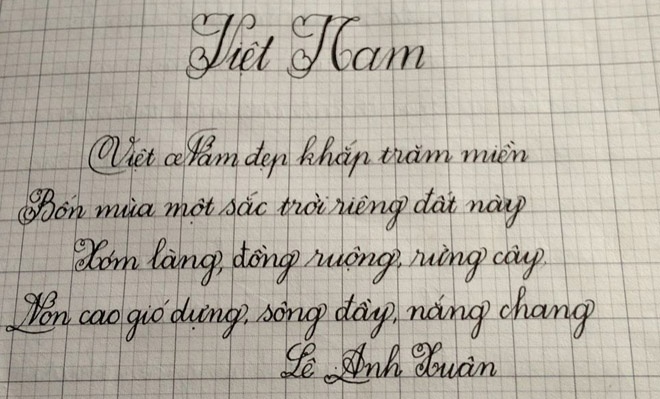 Việt Nam
Việt Nam đẹp khắp trăm miền
Bốn mùa một sắc trời riêng đất này
Xóm làng, đồng ruộng, rừng cây
Non cao gió dựng, sông đầy, nắng chang
Lê Anh Xuân